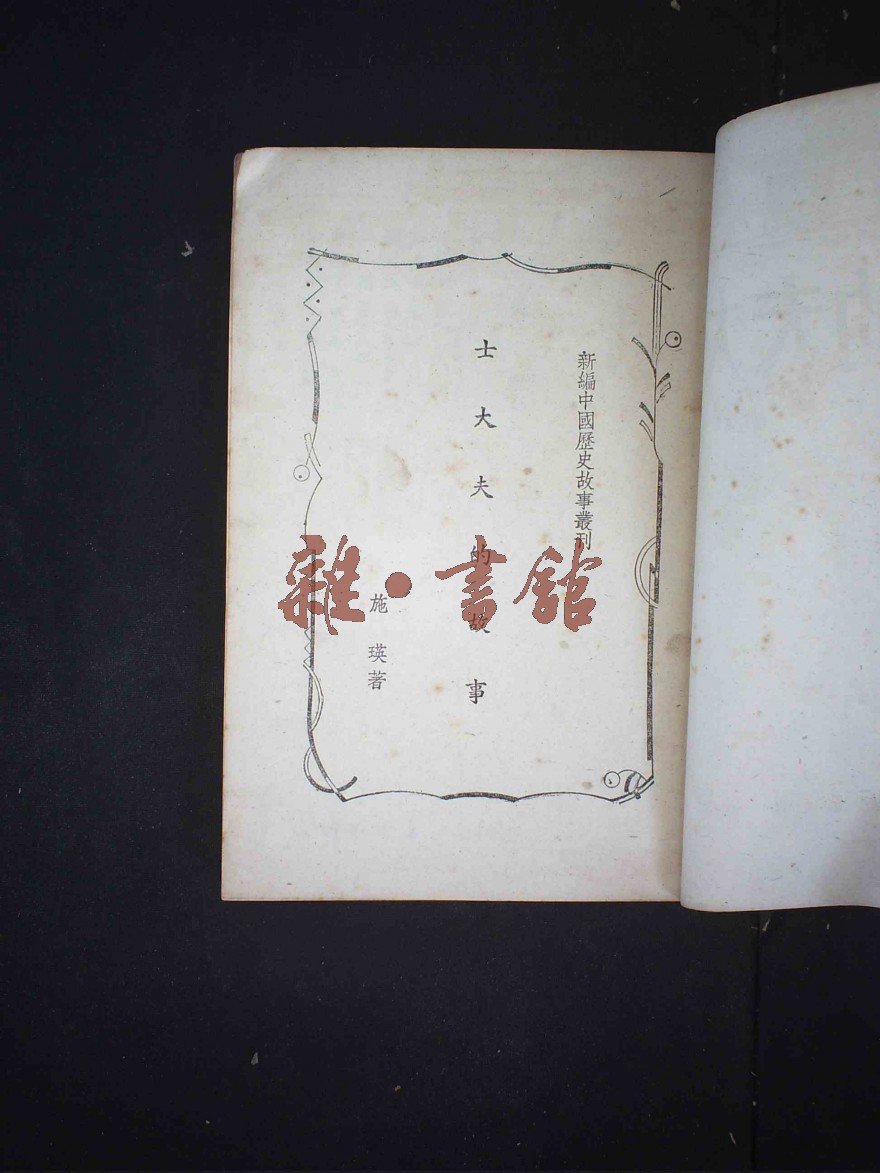 新編中國歷史故事叢刊
士大夫的故事
施瑛著
雜·書館